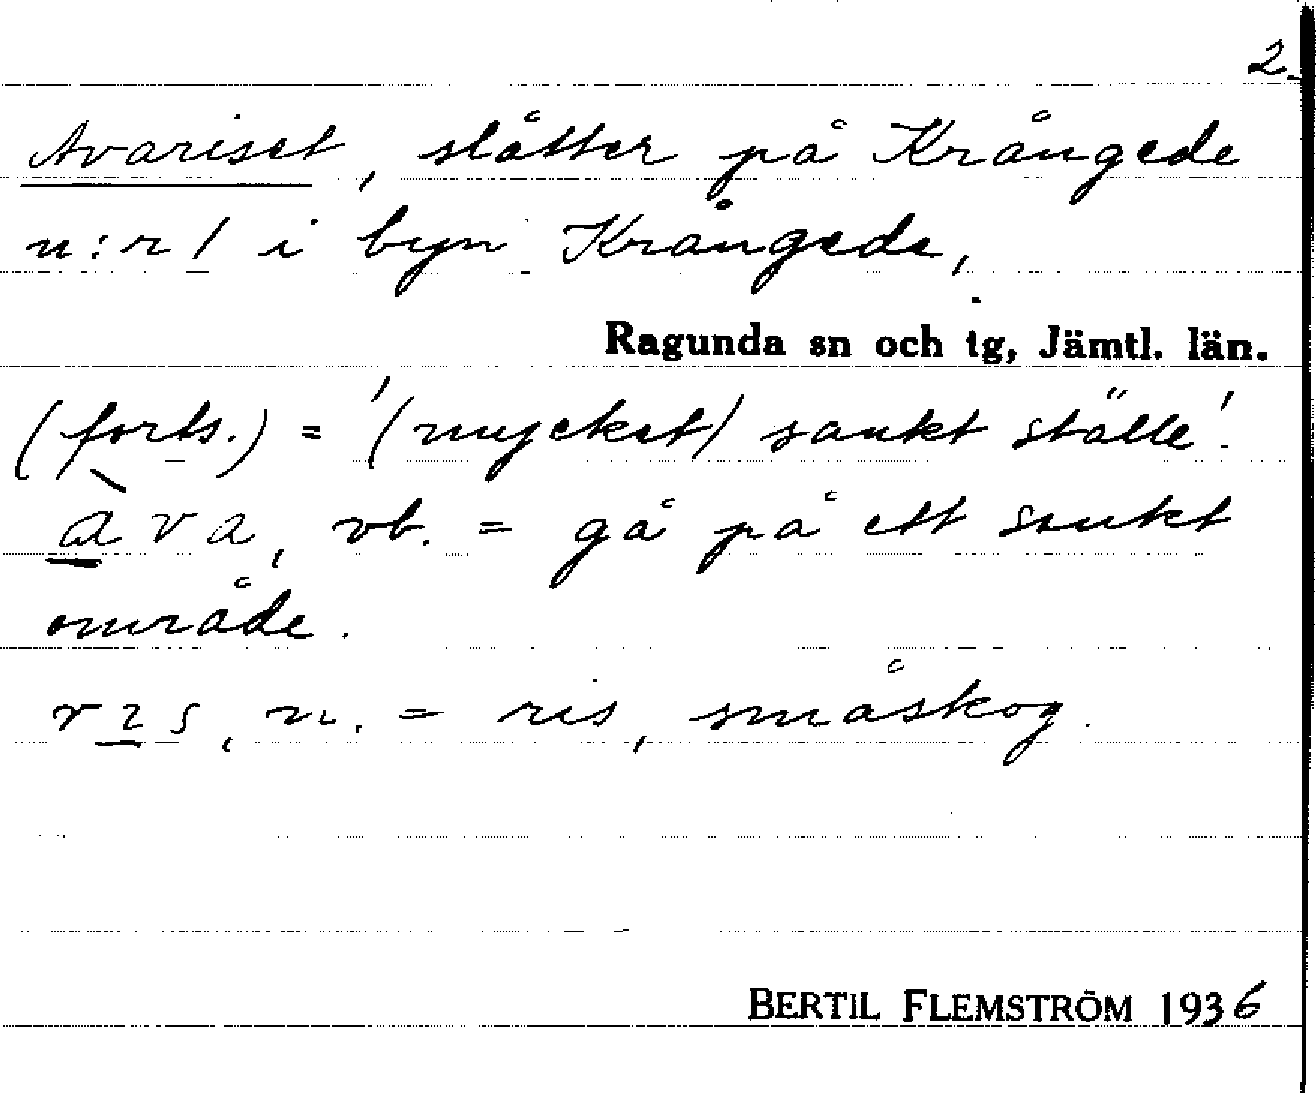 2.
Avariset, slåtter på Krångede
n:r 1 i byn Krångede,
Ragunda sn och tg, Jämtl. län.
(forts.) = '(mycket) sankt ställe'.
àva, vb. = gå på ett sankt
område.
rıs, n. = ris, småskog.
BERTIL FLEMSTRÖM 1936